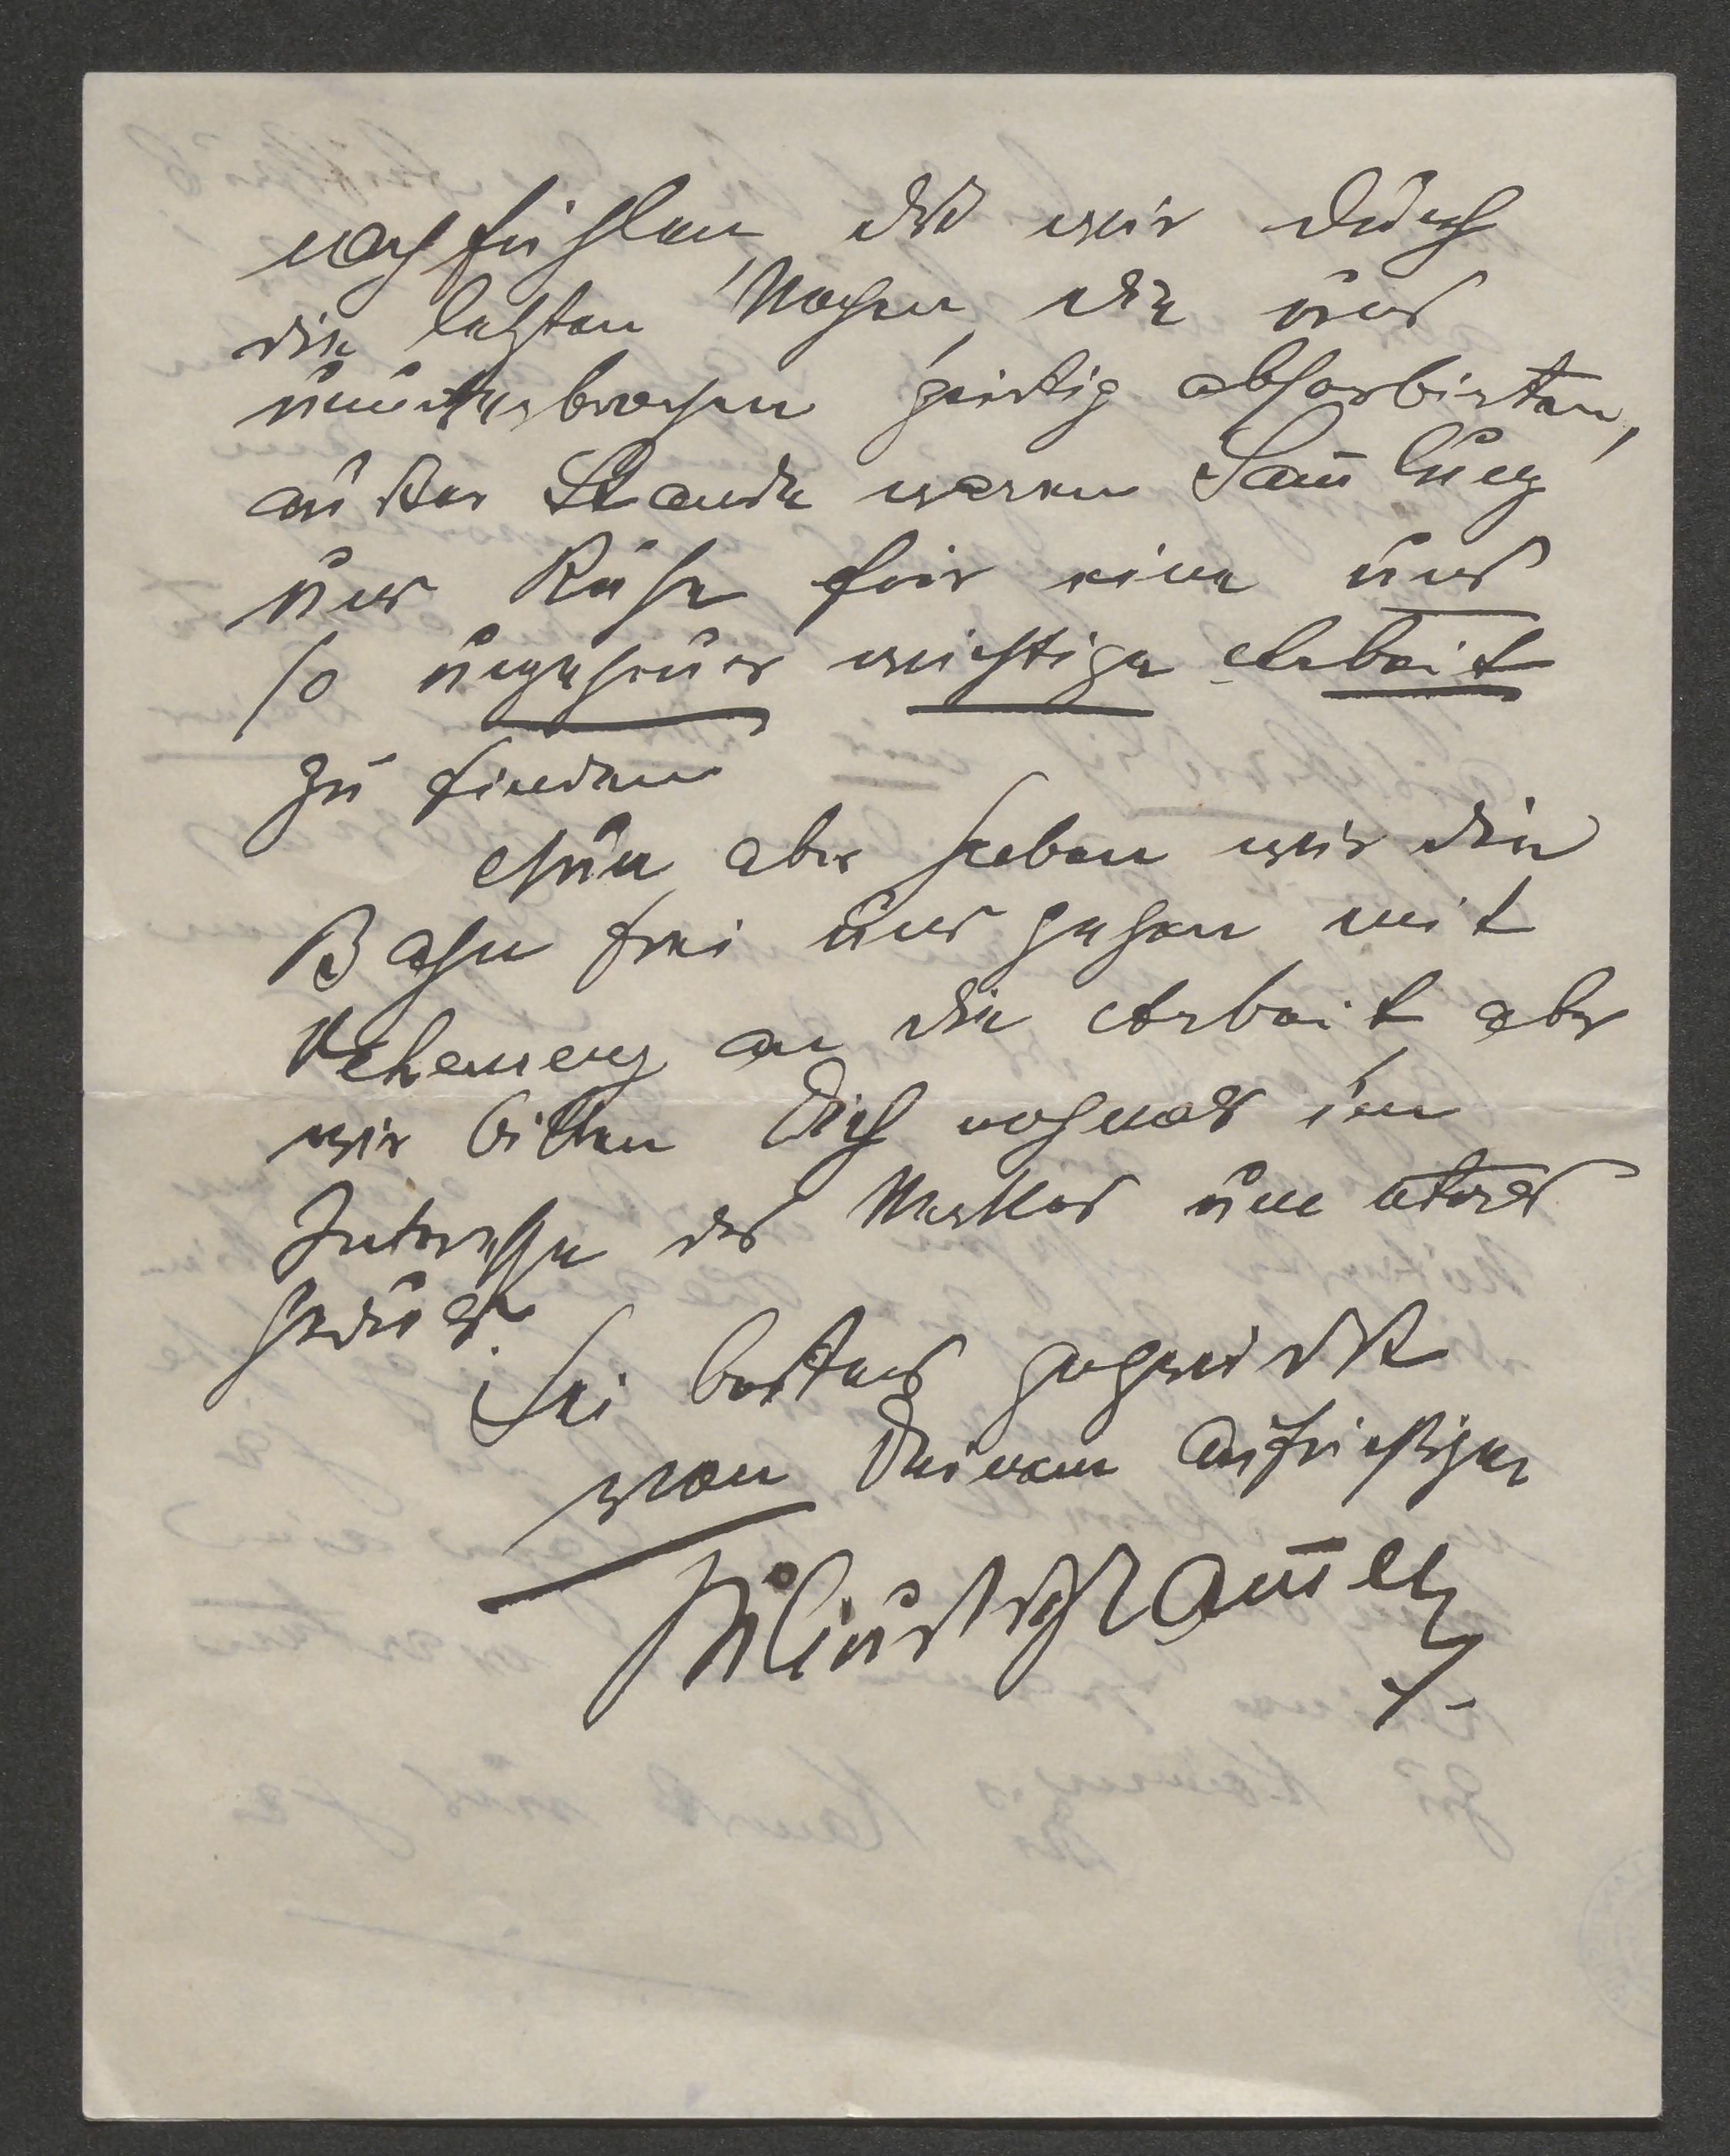 nachfühlen, daß wir durch
die letzten Wochen, die uns
ununterbrochen geistig absorbirten,
außer Stande waren Sam̄lung
und Ruhe für eine uns
so ungeheuer wichtige Arbeit
zu finden
Nun aber haben wir die
Bahn frei und gehen mit
Vehemenz an die Arbeit aber
wir bitten Dich nochmals im
Interesse des Werkes um etwas
Geduld.
Sei bestens gegrüßt
von Deinem aufrichtigen
Julius